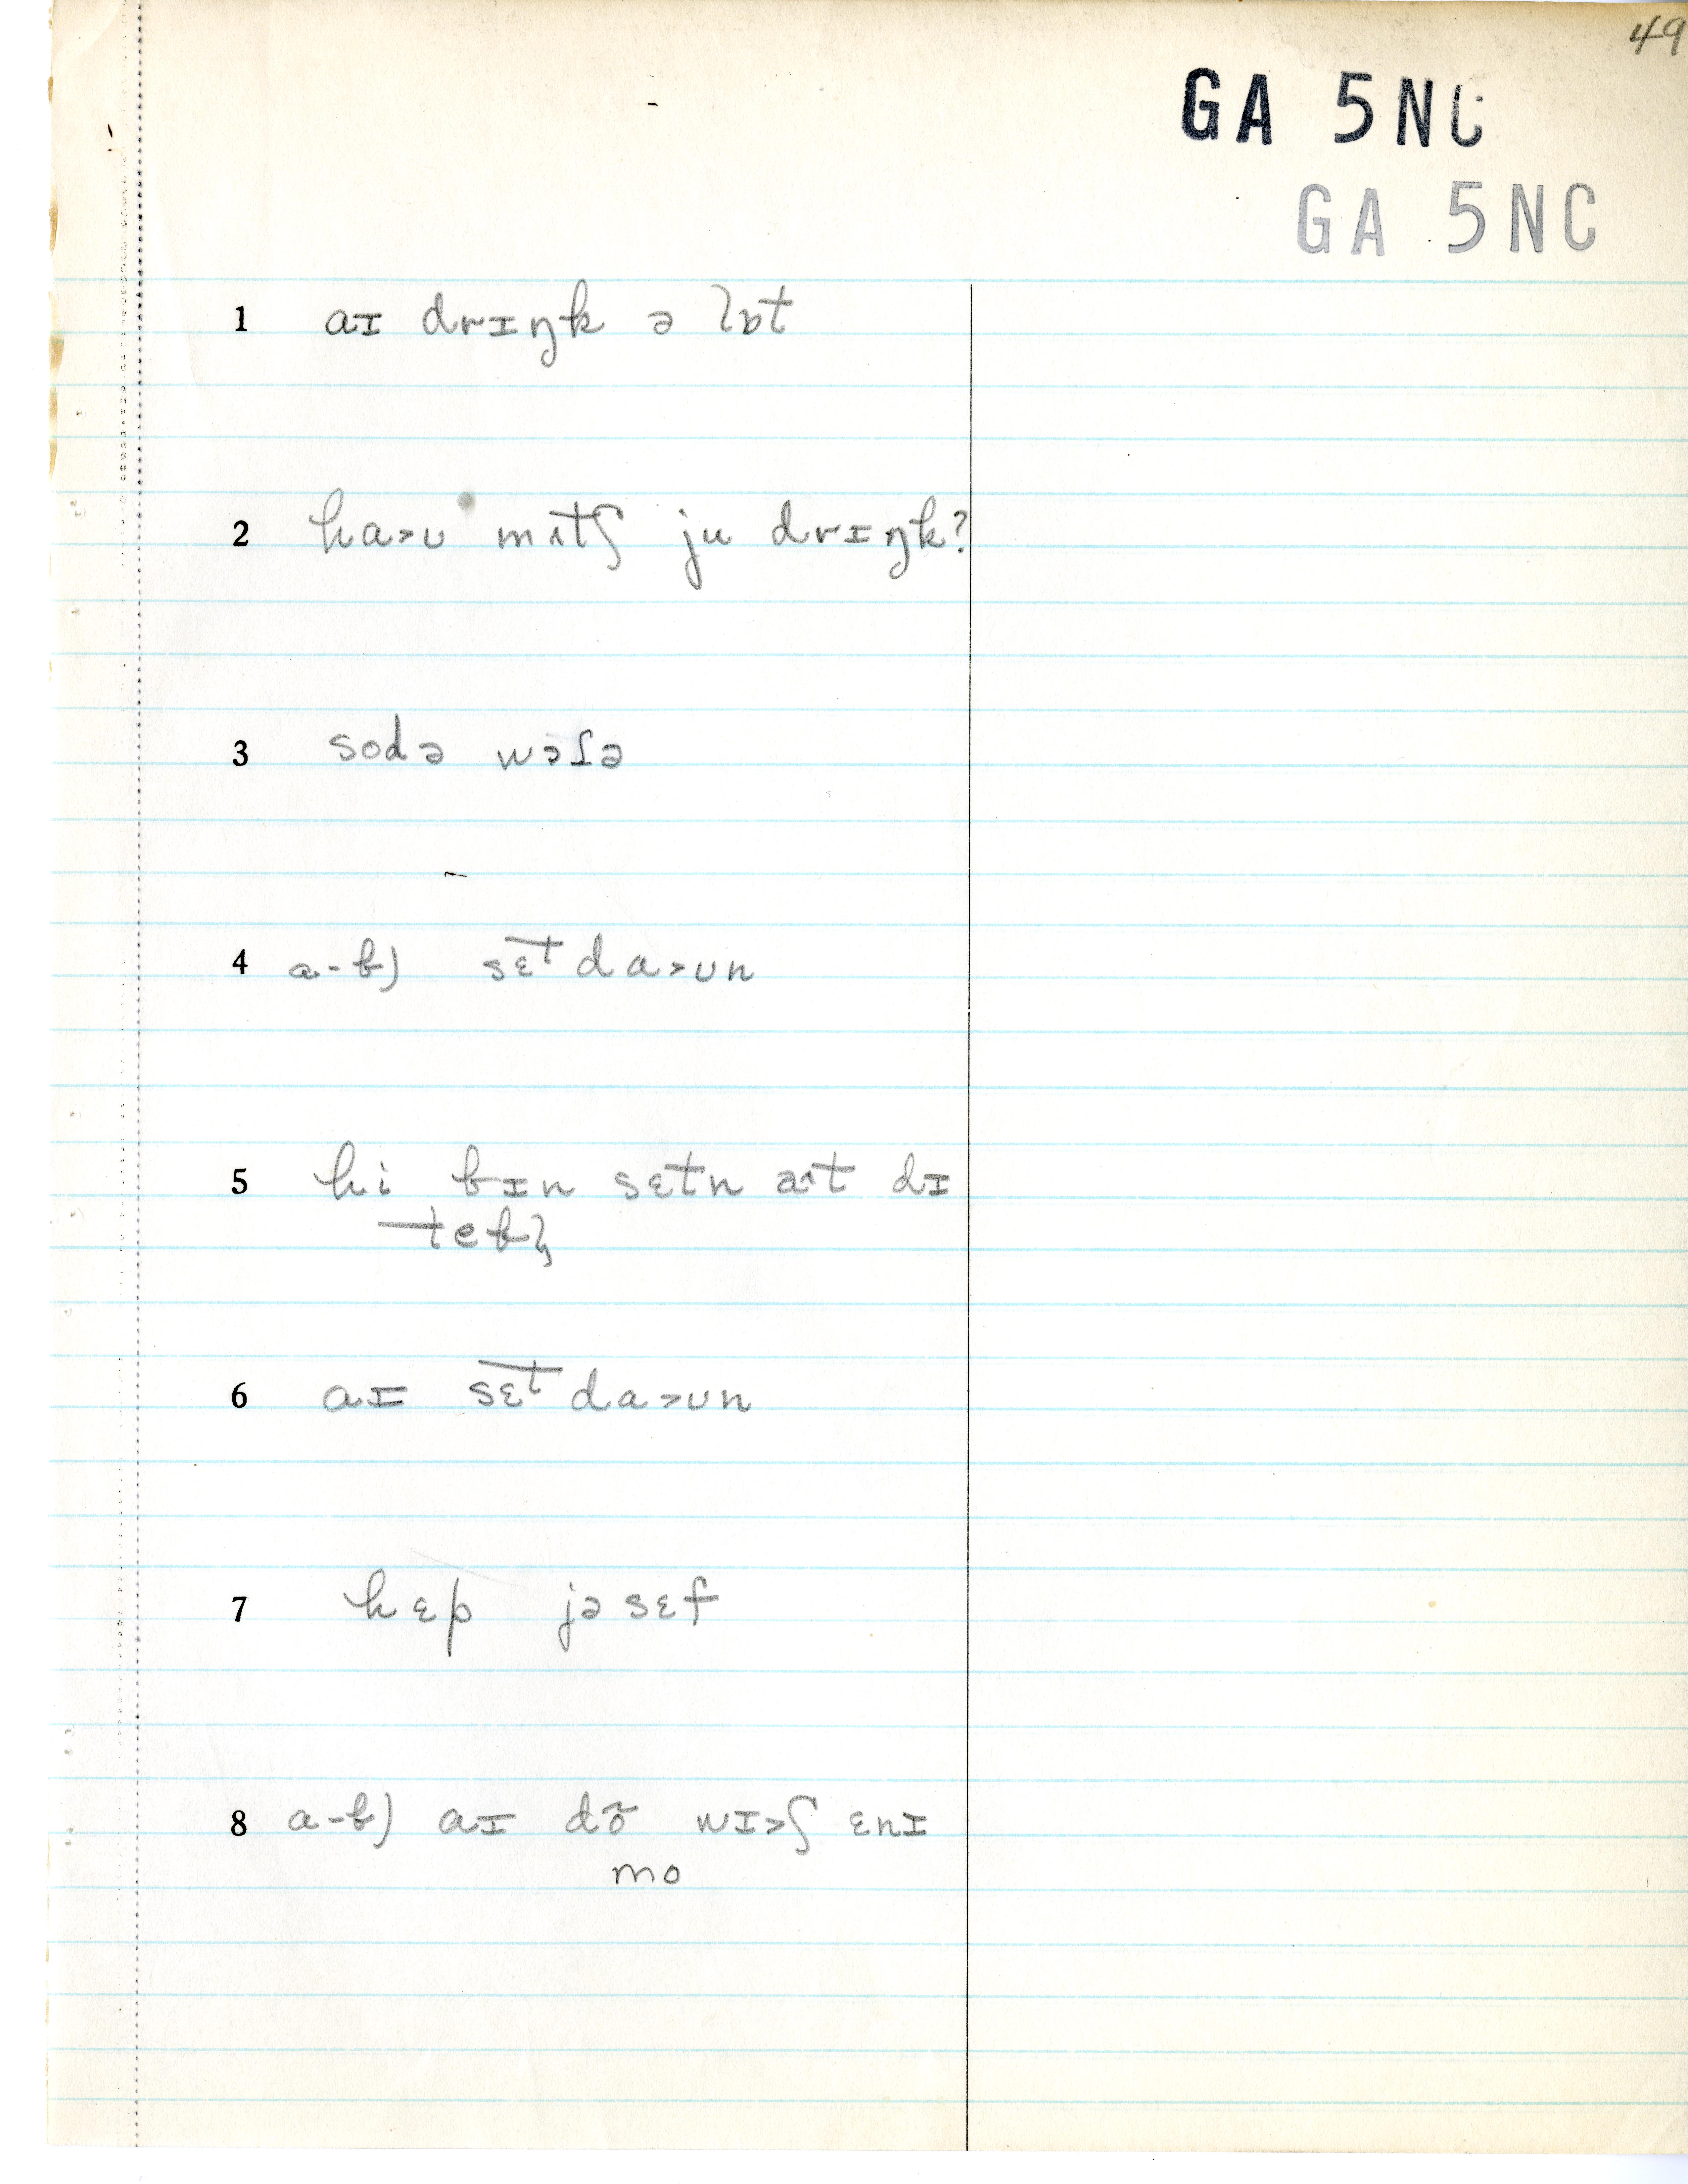 49
GA 5NC
GA 5NC
1 aɪ drɪŋk ə lɒt
2 ha˃ʊ mʌtʃ ju drɪŋk?
3 sodə wɔɾə
4 a-b) sɛt da˃ʊn
5 hi bɪn sɛtn aʌt dɪ
tebl̩
6 aɪ sɛt da˃ʊn
7 hɛp jəsɛf
8 a-b) aɪ dõ wɪ˃ʃ ɛnɪ
mo